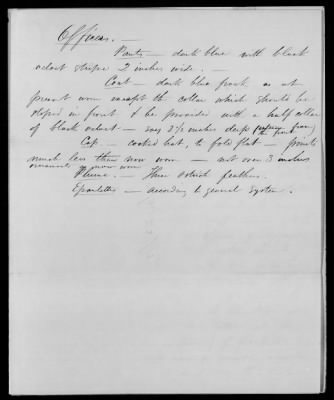 Officers.
Pants — dark blue with black
velvet stripe 2 inches wide. —
Coat — dark blue frock as at
present worn except the collar which should be
sloped in front & be provided with a half collar
of black velvet — say 3½ inches deep
Cap — cocked hat, to fold flat — points
much less than now worn — not over 3 inches
ornaments as now worn
Plume. — Three ostrich feathers.
Epaulettes — according to general system.